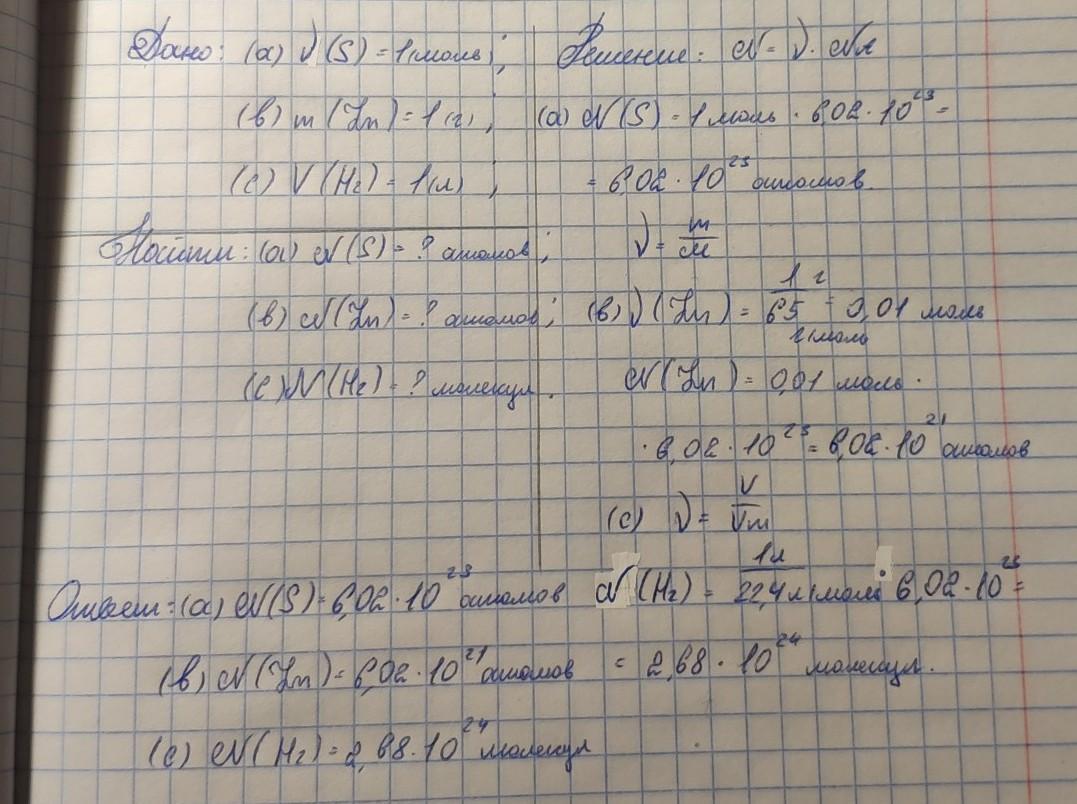 Дано: (а) ν(S) = 1(моль);
(в) m(Zn) = 1(г),
(с) V(H₂) = 1(л),
Найти: (а) N(S) = ? атомов;
(в) N(Zn) = ? атомов;
(с) N(H₂) = ? молекул.
Решение: N = ν · Nᴀ
(а) N(S) = 1 моль · 6,02 · 10²³ =
= 6,02 · 10²³ атомов.
ν = m/M
(в) ν(Zn) = 1 г / 65 г/моль = 0,01 моль
N(Zn) = 0,01 моль ·
· 6,02 · 10²³ = 6,02 · 10²¹ атомов
(с) ν = V/Vm
N(H₂) = 1л / 22,4 л/моль · 6,02 · 10²³ =
= 2,68 · 10²⁴ молекул.
Ответ: (а) N(S) = 6,02 · 10²³ атомов
(в) N(Zn) = 6,02 · 10²¹ атомов
(с) N(H₂) = 2,68 · 10²⁴ молекул